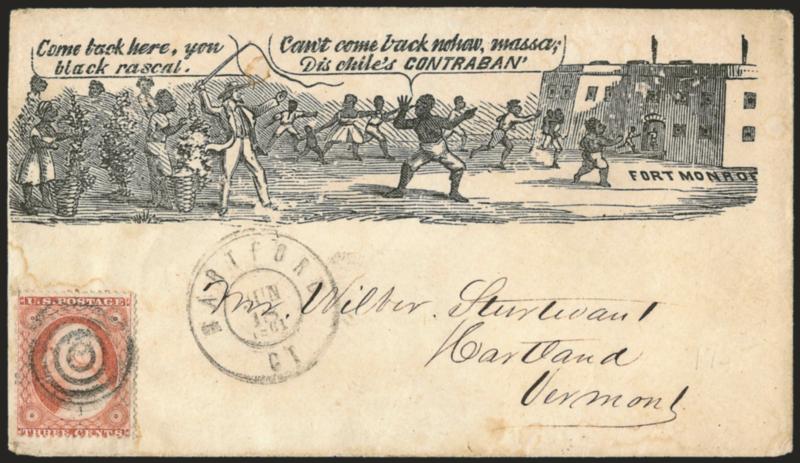 Come back here, you
black rascal.
Can't come back nohow, massa;
Dis chile's CONTRABAN'
FORT MONROE
HARTFORD
JUN
1861
CT
U.S. POSTAGE
THREE CENTS
Mr. Wilber. Sturtevant
Hartland
Vermont